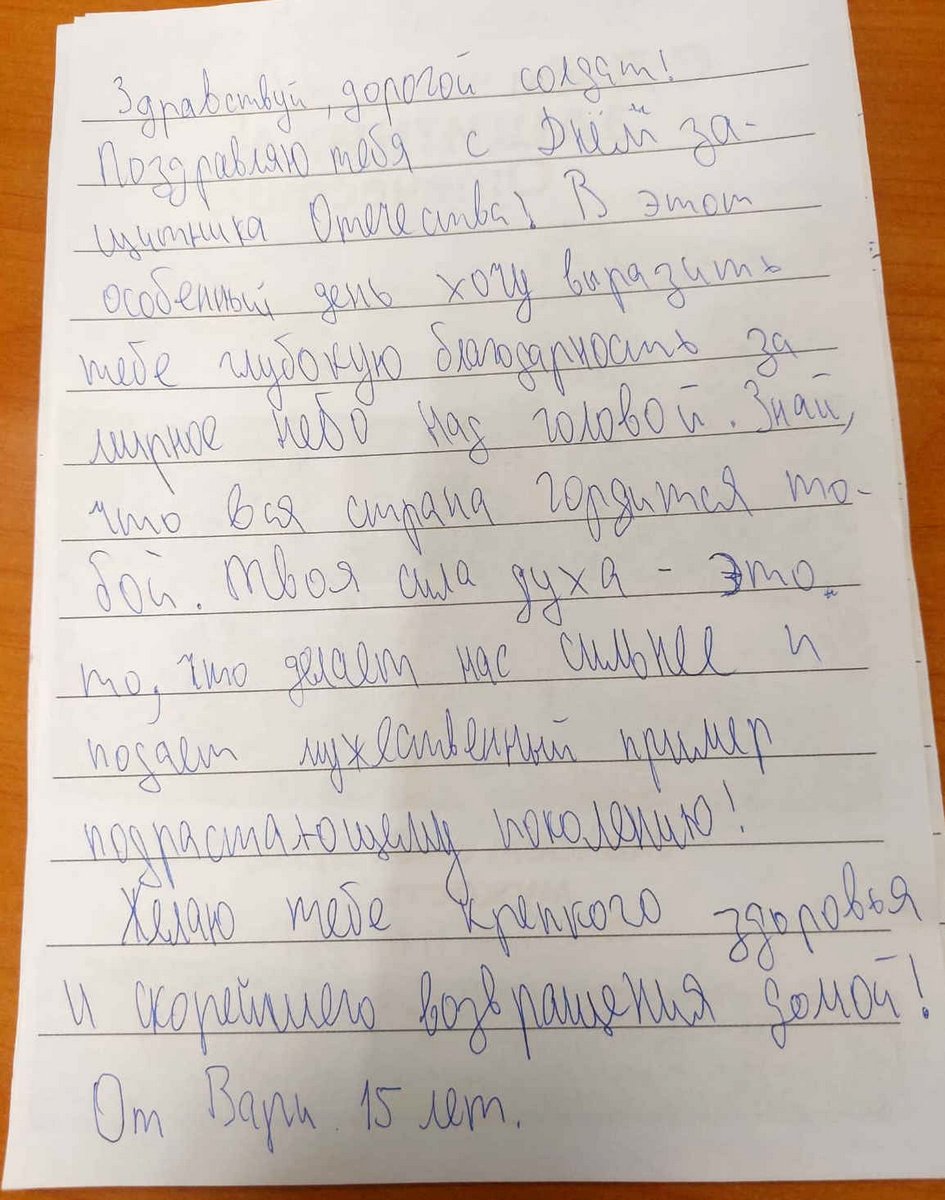 Здравствуй, дорогой солдат!
Поздравляю тебя с Днём за-
щитника Отечества! В этот
особенный день хочу выразить
тебе глубокую благодарность за
мирное небо над головой. Знай,
что вся страна гордится то-
бой. Твоя сила духа - это
то, что делает нас сильнее и
подает мужественный пример
подрастающему поколению!
Желаю тебе крепкого здоровья
и скорейшего возвращения домой!
От Вари 15 лет.